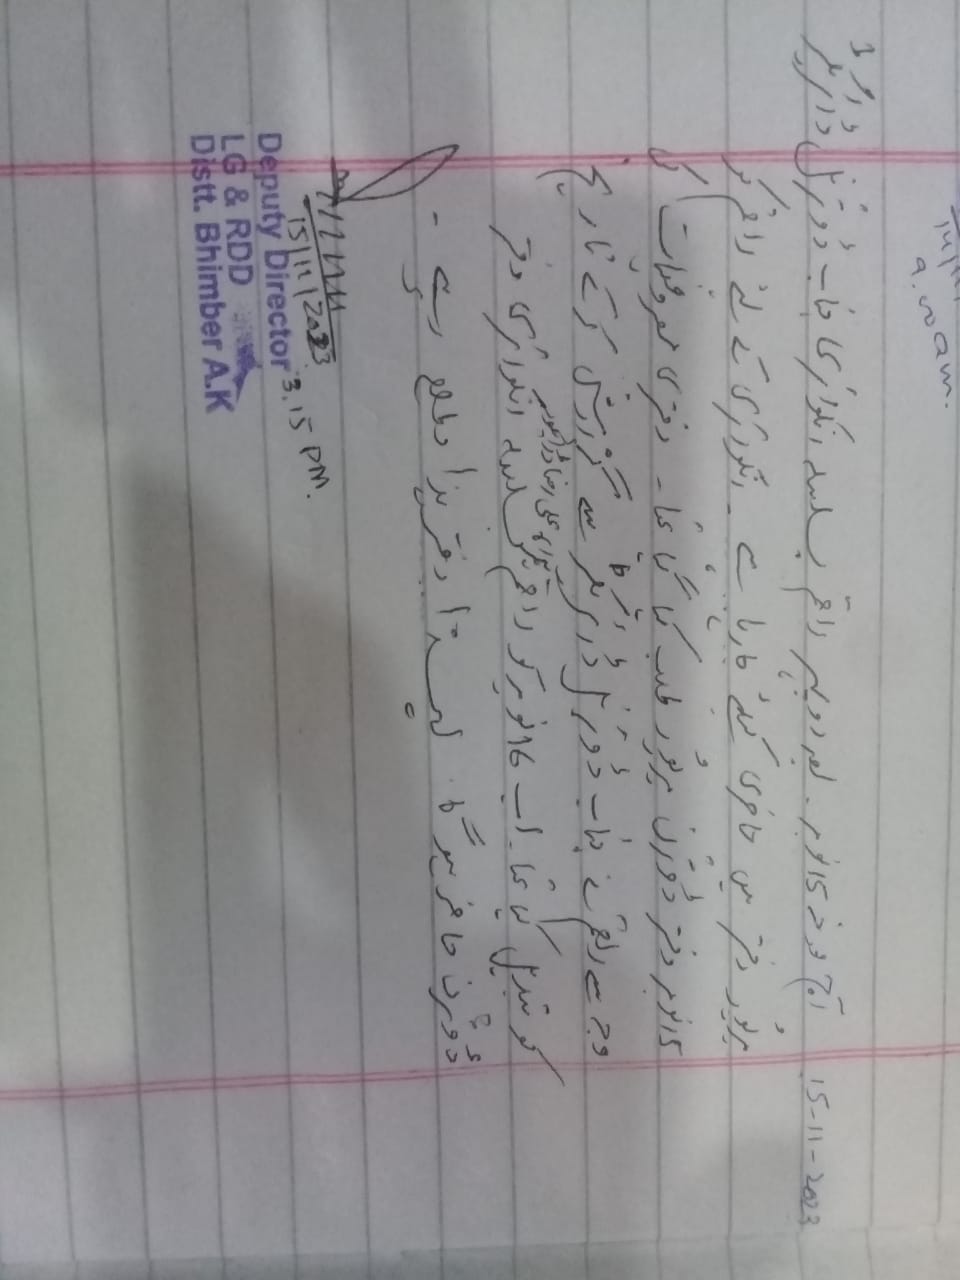 14/11/
9.00 am.
15-11-2023 آج مورخہ 15 نومبر۔ بعد دوپہر راقم بسلسلہ انکوائری جناب ڈویژنل ڈائریکٹر
میرپور دفتر میں حاضری کیلئے جا رہا ہے۔ انکوائری کے لیے راقم کو
15 نومبر دفتر ڈویژن میرپور طلب کیا گیا تھا۔ دفتری مصروفیات کی
وجہ سے راقم نے جناب ڈویژنل ڈائریکٹر سے گزارش کر کے تاریخ
کو تبدیل کیا تھا۔ اب 16 نومبر کو راقم ہمراہ علی رضا ڈرائیور بسلسلہ انکوائری دفتر
ڈویژن حاضر ہوگا۔ لہذا دفتر ہذا مطلع رہے۔
15/11/2023
3.15 PM.
Deputy Director
LG & RDD
Distt. Bhimber A.K